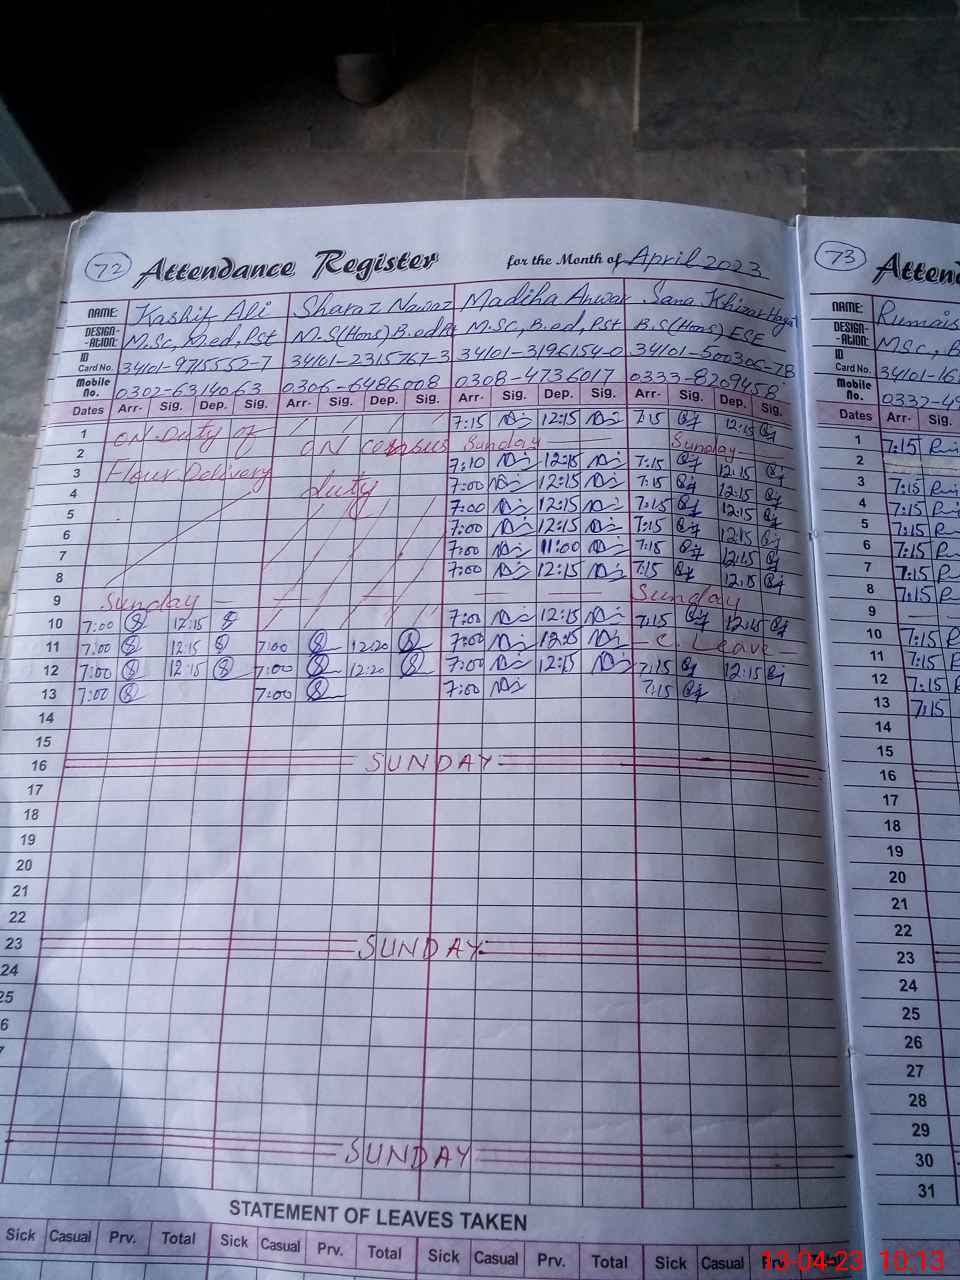 72 Attendance Register for the Month of April 2023 73
NAME: Kashif Ali Sharaz Nawaz Madiha Anwar Sana Khizar Hayat NAME:
DESIGN-ATION: M.Sc, M.ed, Pst M.S(Hons) B.ed M.SC, B.ed, Pst B.S(Hons) ESE DESIGN-ATION: M.SC,
ID Card No. 34101-9715552-7 34101-2315767-3 34101-3196154-0 34101-500306-78 ID Card No. 34101-16
Mobile No. 0302-6314063 0306-6486008 0308-4736017 0333-8209458 Mobile No.
Dates Arr- Sig. Dep. Sig. Arr- Sig. Dep. Sig. Arr- Sig. Dep. Sig. Arr- Sig. Dep. Sig. Dates Arr- Sig.
1 ON-Duty of 7:15 12:15 7:15 12:15 1 7:15
2 ON Duty Sunday Sunday 2
3 Flour Delivery 7:10 12:15 7:15 12:15 3 7:15
4 7:00 12:15 7:15 12:15 4 7:15
5 7:00 12:15 7:15 12:15 5 7:15
6 7:00 12:15 7:15 12:15 6 7:15
7 7:00 11:00 7:15 12:15 7 7:15
8 7:00 12:15 7:15 12:15 8 7:15
9 Sunday Sunday 9
10 7:00 12:15 7:00 12:15 7:15 12:15 10 7:15
11 7:00 12:15 7:00 12:20 7:00 12:15 C. Leave 11 7:15
12 7:00 12:15 7:00 12:20 7:00 12:15 7:15 12:15 12 7:15
13 7:00 7:00 7:00 7:15 13 7:15
14 14
15 15
16 SUNDAY 16
17 17
18 18
19 19
20 20
21 21
22 22
23 SUNDAY 23
24 24
25 25
6 26
27
28
29
SUNDAY 30
31
STATEMENT OF LEAVES TAKEN
Sick Casual Prv. Total Sick Casual Prv. Total Sick Casual Prv. Total Sick Casual
13-04-23 10:13